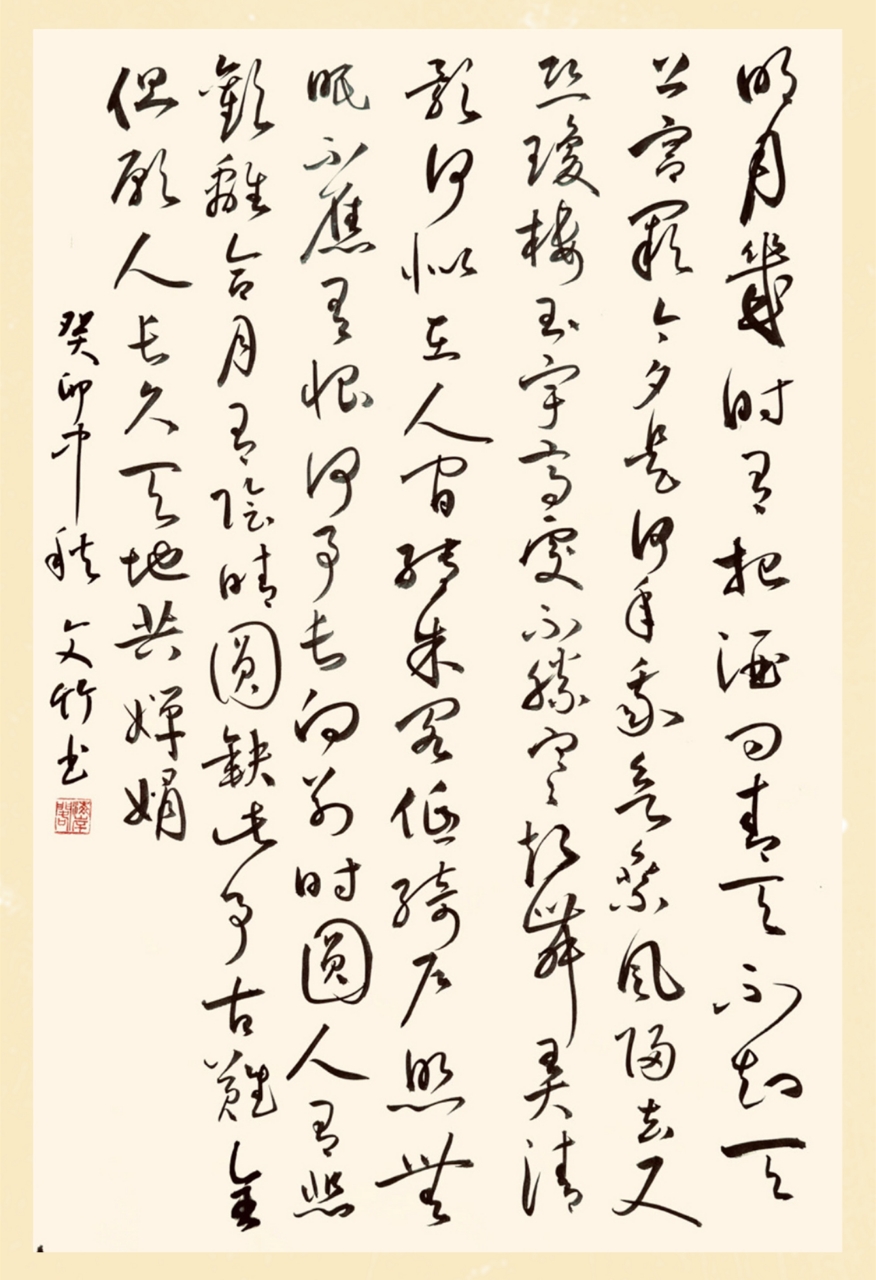 明月幾时有把酒问青天不知天
上宫阙今夕是何年我欲乘风归去又
恐瓊樓玉宇高處不勝寒起舞弄清
影何似在人间转朱阁低绮户照無
眠不應有恨何事长向别时圆人有悲
歡離合月有陰晴圆缺此事古難全
但願人长久天地共嬋娟
癸卯中秋 文竹书